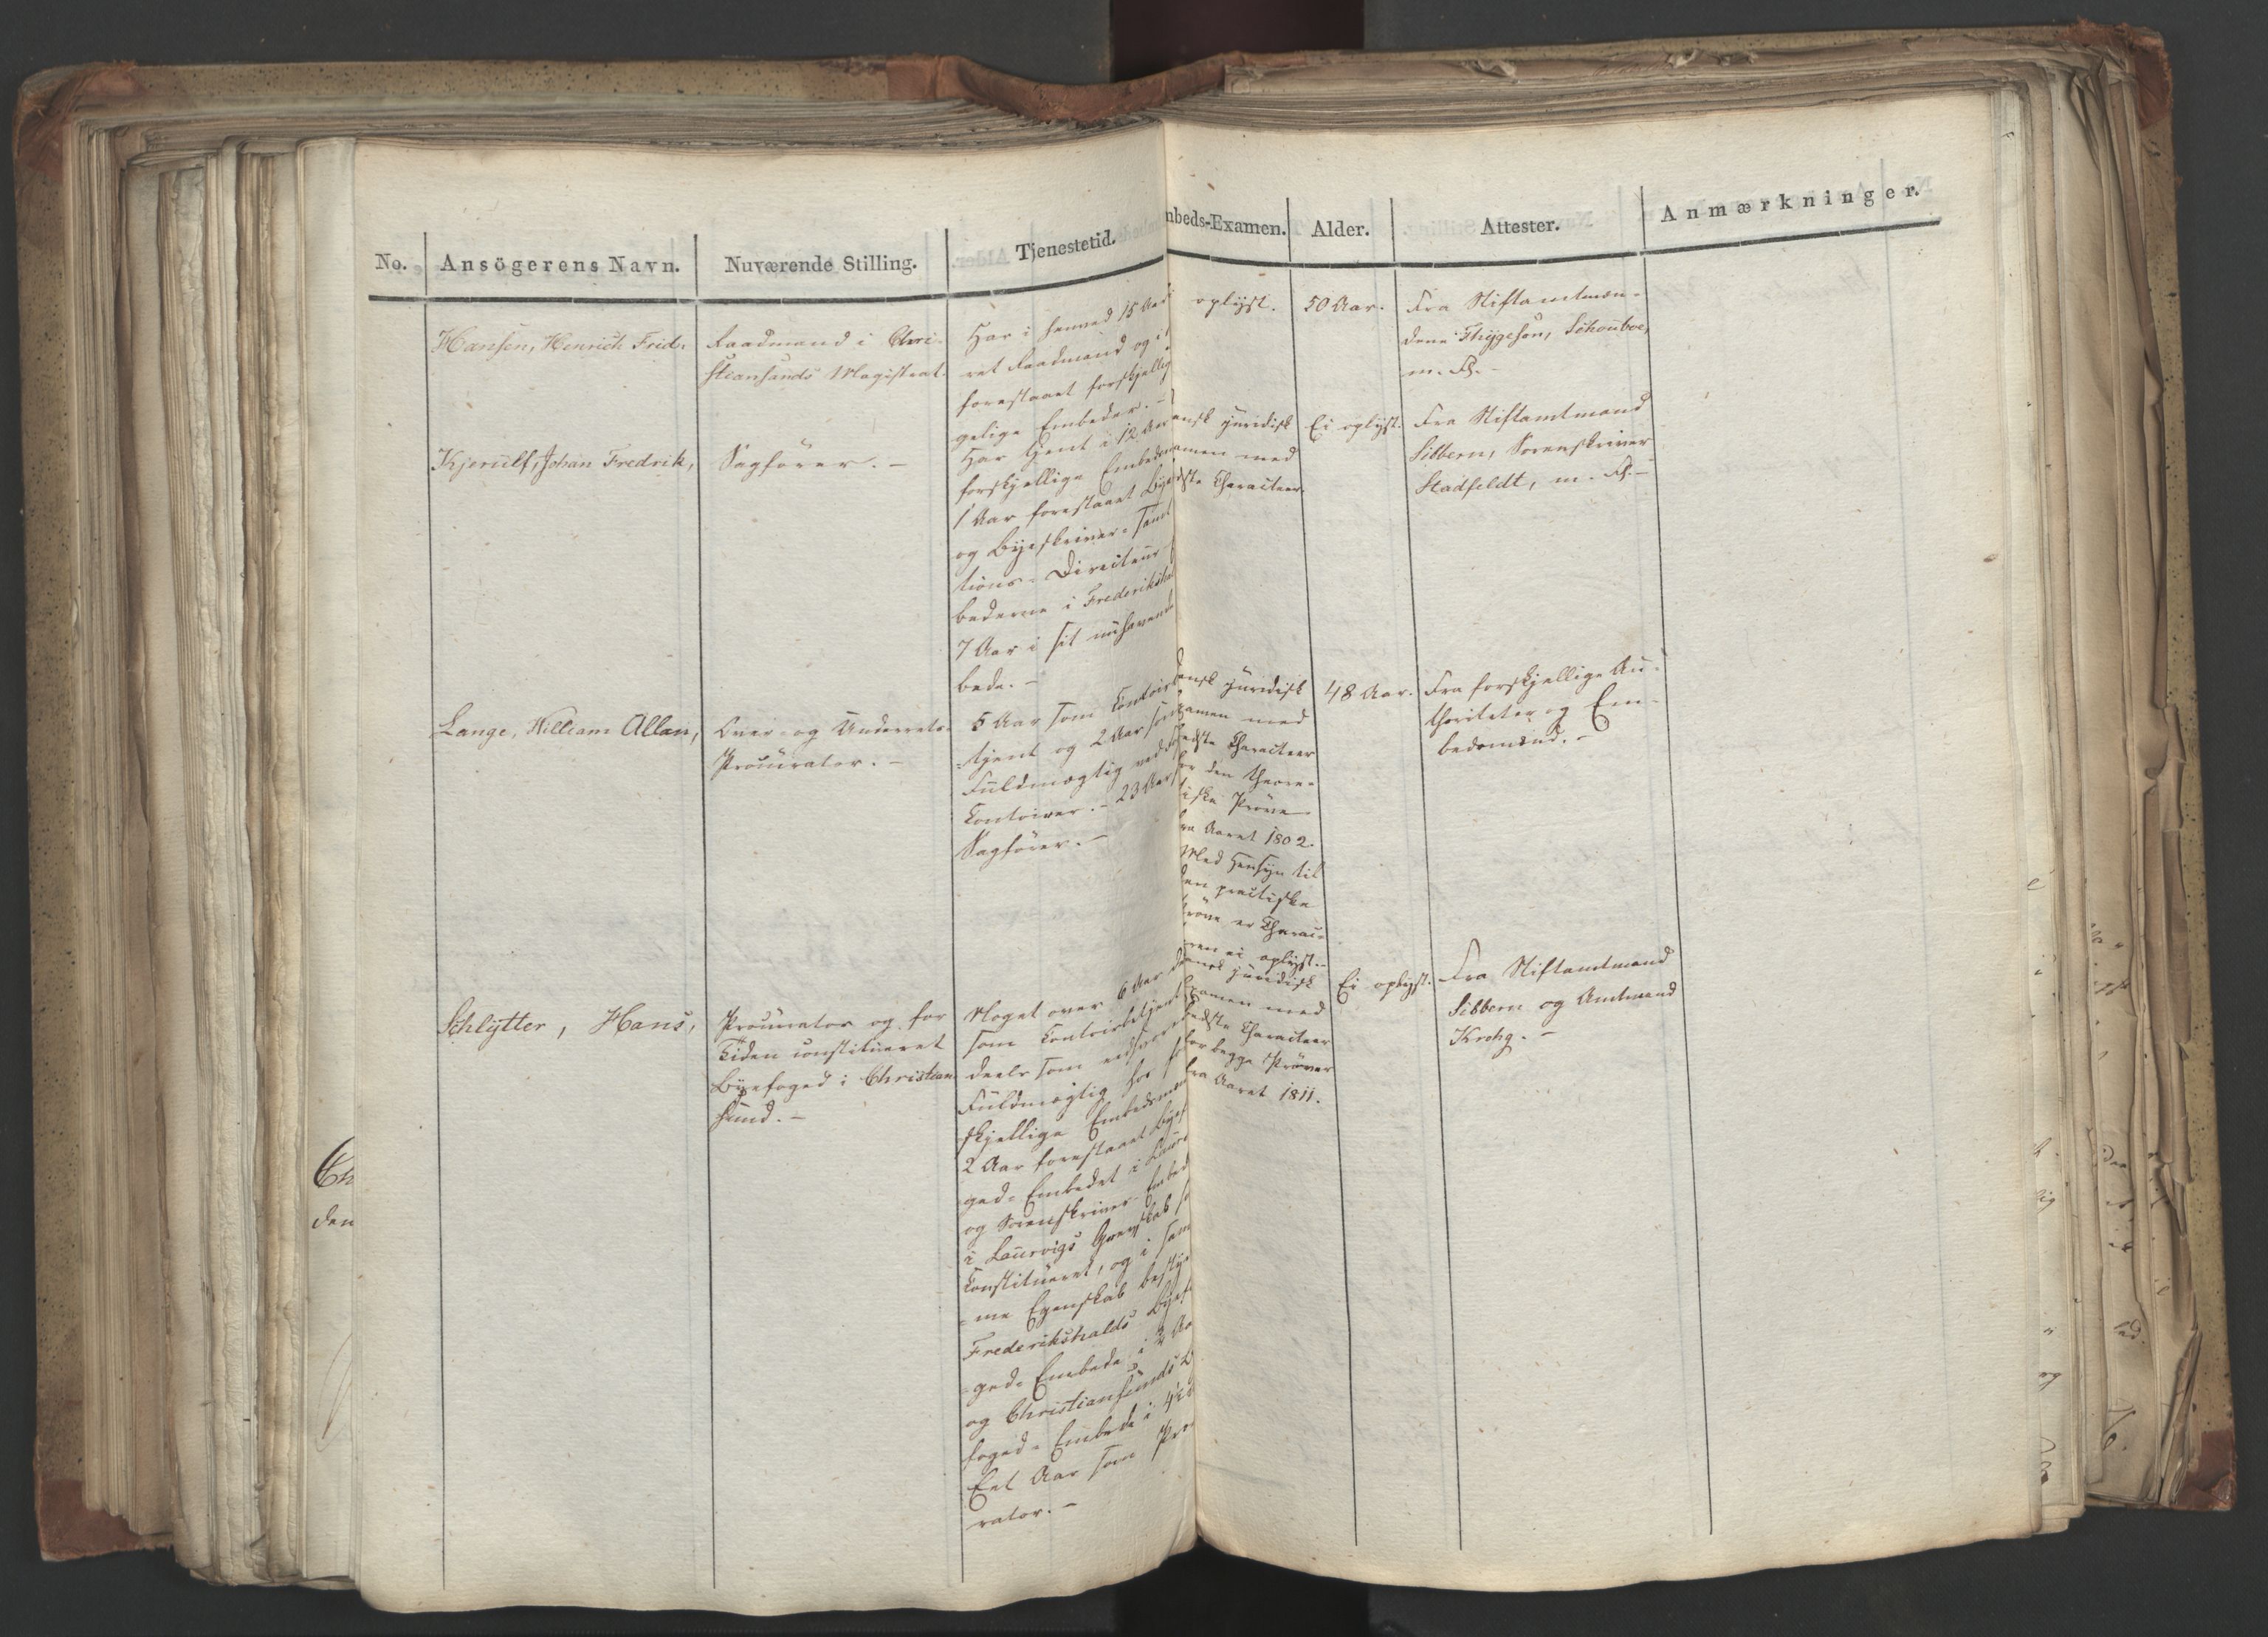 No.
Ansögerens Navn.
Nuværende Stilling.
Tjenestetid.
mbeds-Examen.
Alder.
Attester.
Anmærkninger.
Hansen, Henrich Fred:
Raadmand i Chri-
stiansands Magistrat.
Har i henved 15 Aar
ret Raadmand og i
forestaaet forskjellig
gelige Embeder. -
oplyst.
50 Aar.
Fra Stiftamtmæn-
dene Thygeson, Schouboe,
m. Fl. -
Kjerulf, Johan Fredrik,
Sagfører. -
Har tjent i 12 Aar
forskjellige Embeds
1 Aar forestaaet Bye
og Byeskriver- samt
tions-Directeur
bederne i Frederiksha
7 Aar i sit nuhavende
bede. -
ansk juridisk
amen med
dste Characteer.
Ei oplyst.
Fra Stiftamtmand
Sibbern, Sorenskriver
Stadfeldt, m. Fl. -
Lange, William Allan,
Over- og Underrets-
Procurator. -
5 Aar som Contoirbe
tjent og 2 Aar som
Fuldmægtig ved
Contoirer. - 23 Aar
Sagfører. -
dansk juridisk
xamen med
bedste Characteer
for den theore-
tiske Prøve
fra Aaret 1802.
Med Hensyn til
den practiske
Prøve er Charac-
ren ei oplyst. -
48 Aar.
Fra forskjellige Au-
thoriteter og Em-
bedsmænd. -
Schlytter, Hans,
Procurator og for
Tiden constitueret
Byefoged i Christian
sund. -
Noget over 6 Aar d
som Contoirbetjent
deels som edsvoren
Fuldmægtig hos for
skjellige Embedsmæn
2 Aar forestaaet Byef
ged-Embedet i Laur
og Sorenskriver-Embed
i Laurvigs Grevskab so
Constitueret, og i sam
me Egenskab besty
Frederikshalds Byef
ged-Embede i 2 Aa
og Christiansunds B
foged-Embede i 4½
Eet Aar som Proc
rator. -
dansk juridisk
Examen med
bedste Characteer
for begge Prøver
fra Aaret 1811.
Ei oplyst.
Fra Stiftamtmand
Sibbern og Amtmand
Krohg. -
Ch
den